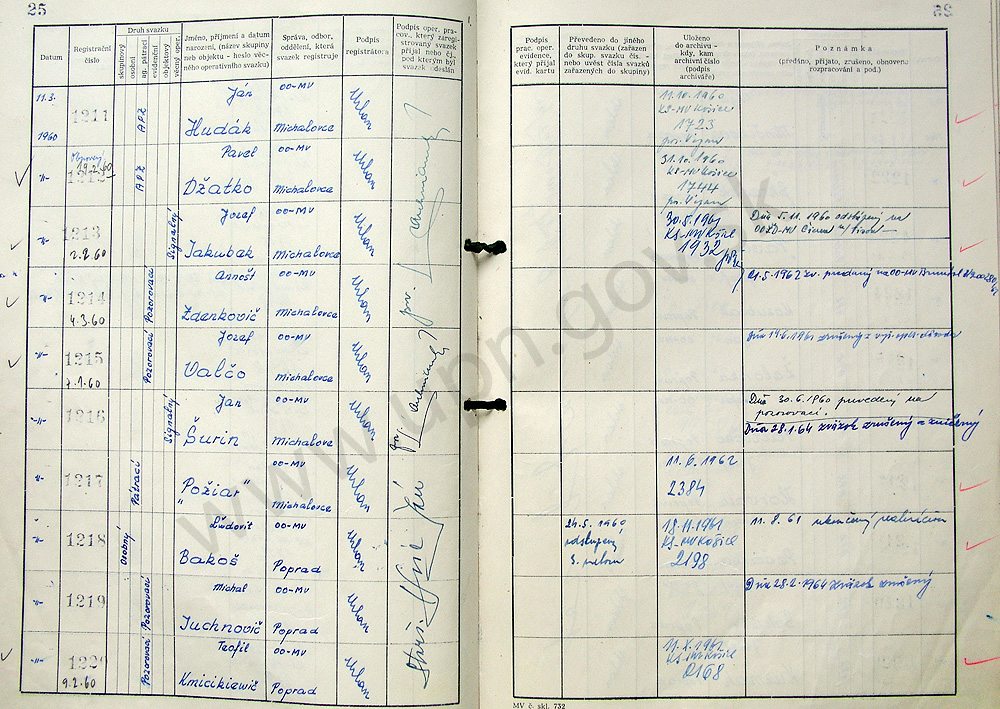 25
Datum
Registrační číslo
Druh svazku
skupinový
osobní
ag. pátrací
evidenční
objektový
věcný oper.
Jméno, příjmení a datum
narození, (název skupiny
neb objektu - heslo věc-
ného operativního svazku)
Správa, odbor,
oddělení, která
svazek registruje
Podpis
registrátora
Podpis oper. pra-
cov., který zaregi-
strovaný svazek
přijal nebo čj.,
pod kterým byl
svazek odeslán
11.3. 1960
1211
Jan Hudák
OO-MV Michalovce
Urban
-"- 1212
19.2.60
Pavel Džatko
OO-MV Michalovce
Urban
-"- 1213
2.2.60
Signálný
Jozef Jakubák
OO-MV Michalovce
Urban
-"- 1214
4.3.60
Pozorovací
Arnošt Zdenkovič
OO-MV Michalovce
Urban
-"- 1215
7.1.60
Pozorovací
Jozef Valčo
OO-MV Michalovce
Urban
-"- 1216
Signálný
Jan Šurin
OO-MV Michalovce
Urban
-"- 1217
Pátrací
"Požiar"
OO-MV Michalovce
Urban
-"- 1218
Osobný
Ľudovít Bakoš
OO-MV Poprad
Urban
-"- 1219
Pozorovací
Michal Juchnovič
OO-MV Poprad
Urban
-"- 1220
9.2.60
Pozorovací
Teofil Kmicikiewič
OO-MV Poprad
Urban
Podpis
prac. oper.
evidence,
který přijal
evid. kartu
Převedeno do jiného
druhu svazku (zařazen
do skup. svazku čís. -
nebo uvést čísla svazků
zařazených do skupiny)
Uloženo
do archivu -
kdy, kam
archivní číslo
(podpis
archiváře)
Poznámka
(předáno, přijato, zrušeno, obnoveno
rozpracování a pod.)
11.10.1960
KS-MV Košice
1723
31.10.1960
KS-MV Košice
1744
30.5.1961
KS-MV Košice
1932
Dňa 5.11.1960 odstúpený na
Dňa 30.6.1960 prevedený na
pozorovací.
Dňa 28.1.64 zväzok zrušený a zničený
11.6.1962
2384
24.5.1960
odstupený
18.11.1961
KS-MV Košice
2198
11.8.61 ukončený realizáciou
Dňa 28.2.1964 zväzok zrušený
11.X.1962
KS-MV Košice
0168
MV č. skl. 732
www.upn.gov.sk